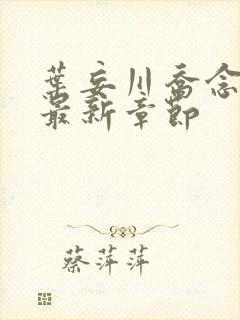 葉妄川喬念
最新章節
蔡萍萍